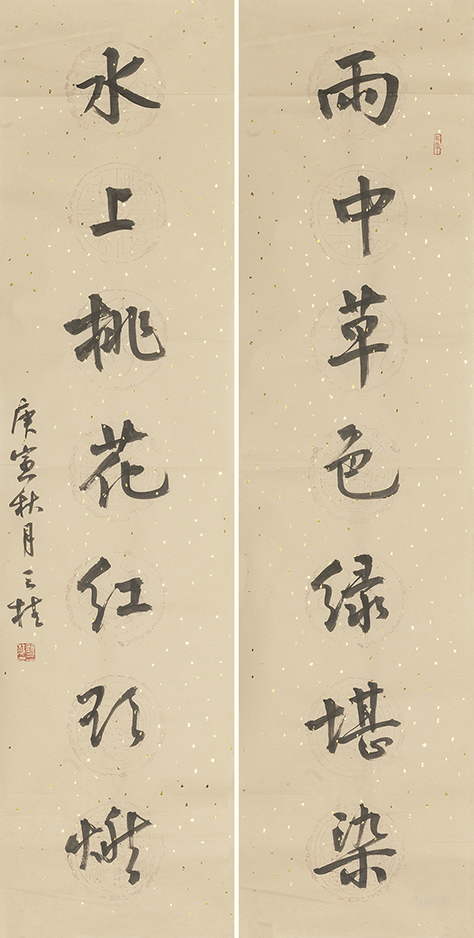 雨中草色绿堪染
水上桃花红欲燃
庚寅秋月